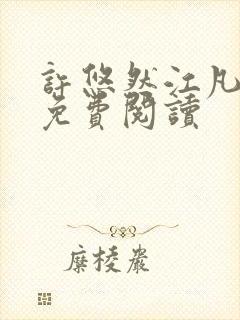 許悠然江凡
免費閱讀
糜棱嚴